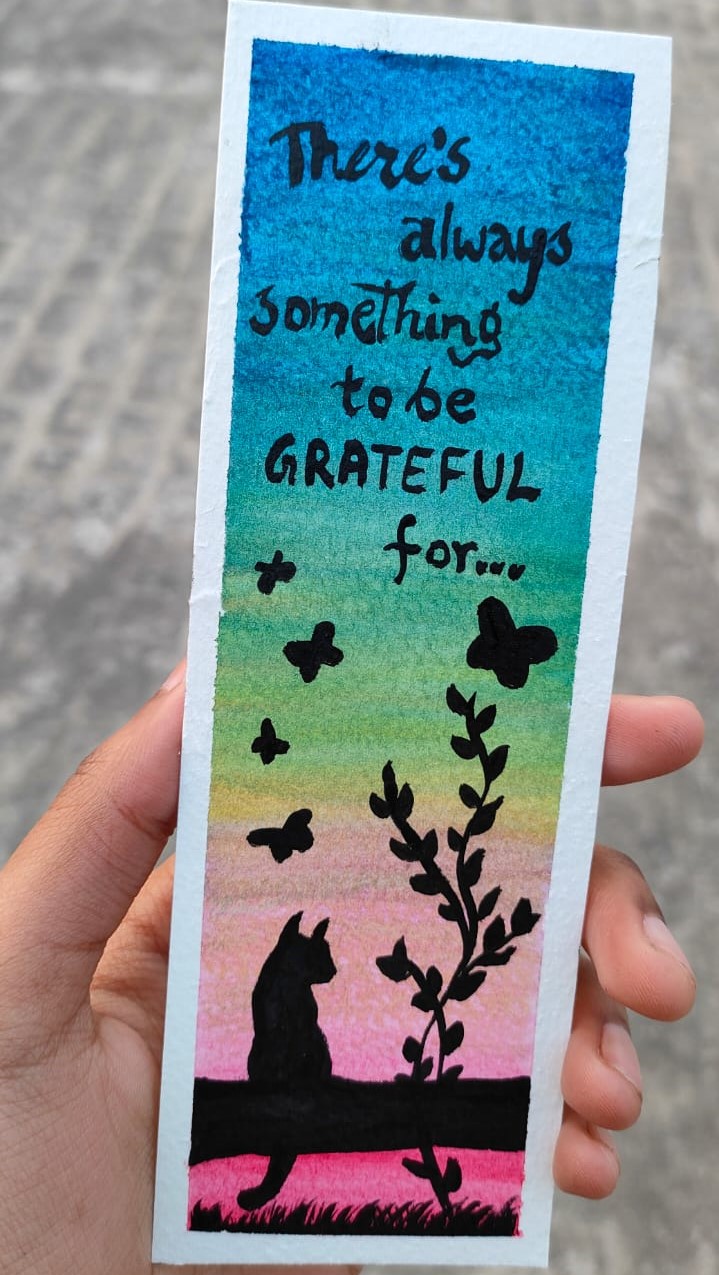 There's
always
something
to be
GRATEFUL
for...